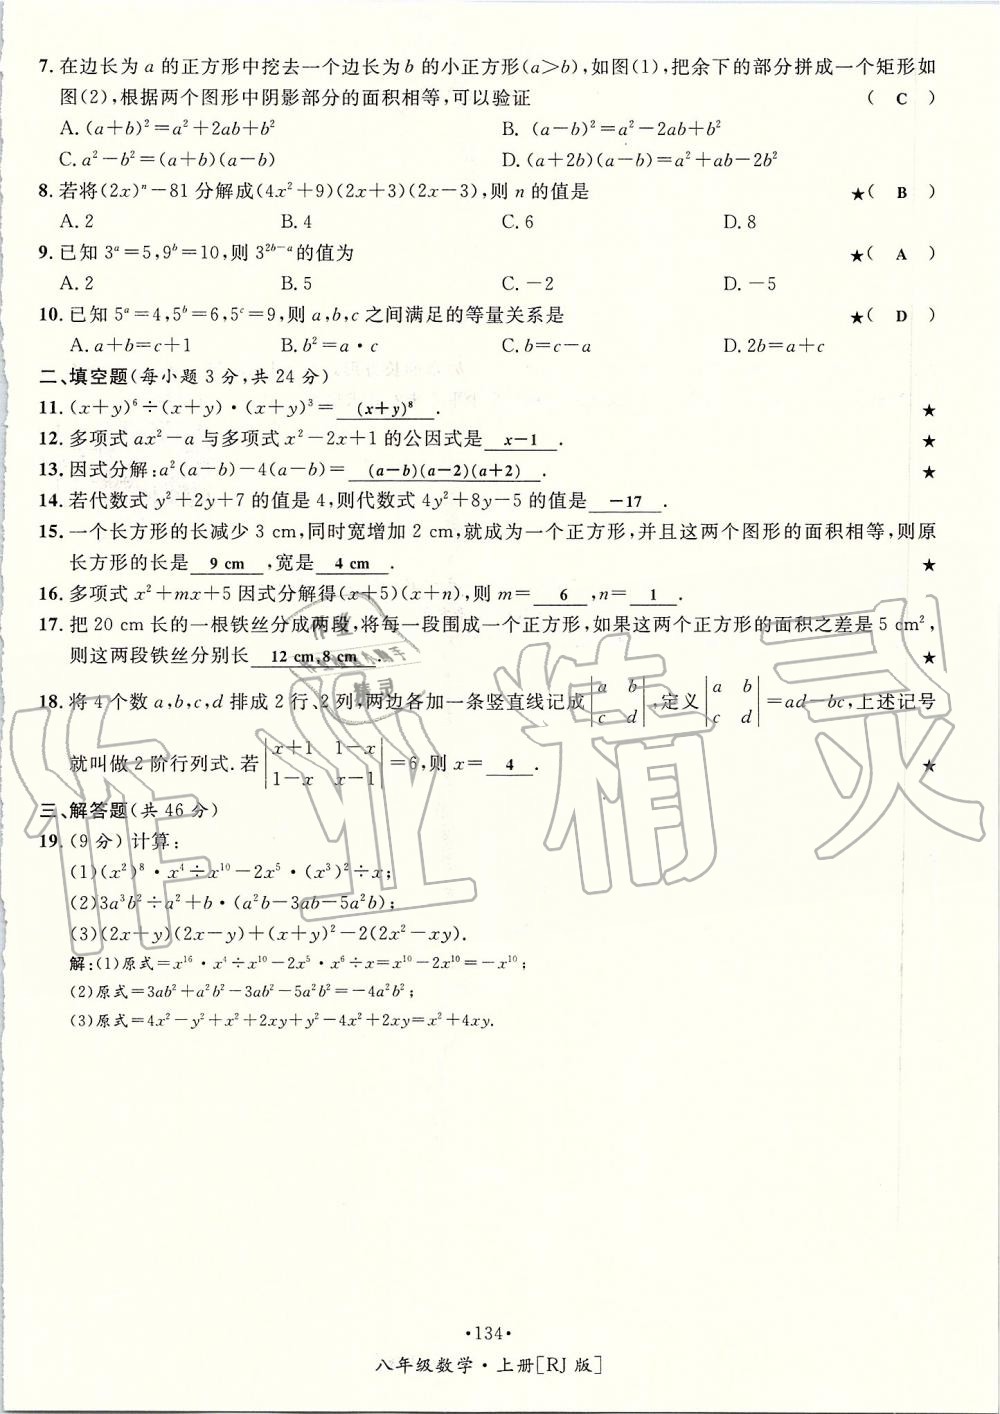 7. 在边长为 a 的正方形中挖去一个边长为 b 的小正方形(a>b),如图(1),把余下的部分拼成一个矩形如
图(2),根据两个图形中阴影部分的面积相等,可以验证 ( C )
A. (a+b)²=a²+2ab+b² B. (a-b)²=a²-2ab+b²
C. a²-b²=(a+b)(a-b) D. (a+2b)(a-b)=a²+ab-2b²
8. 若将(2x)ⁿ-81 分解成(4x²+9)(2x+3)(2x-3),则 n 的值是 ★( B )
A. 2 B. 4 C. 6 D. 8
9. 已知 3ᵃ=5,9ᵇ=10,则 3²ᵇ⁻ᵃ 的值为 ★( A )
A. 2 B. 5 C. -2 D. -5
10. 已知 5ᵃ=4,5ᵇ=6,5ᶜ=9,则 a,b,c 之间满足的等量关系是 ★( D )
A. a+b=c+1 B. b²=a·c C. b=c-a D. 2b=a+c
二、填空题(每小题 3 分,共 24 分)
11. (x+y)⁶÷(x+y)·(x+y)³= (x+y)⁸ . ★
12. 多项式 ax²-a 与多项式 x²-2x+1 的公因式是 x-1 . ★
13. 因式分解:a²(a-b)-4(a-b)= (a-b)(a-2)(a+2) . ★
14. 若代数式 y²+2y+7 的值是 4,则代数式 4y²+8y-5 的值是 -17 .
15. 一个长方形的长减少 3 cm,同时宽增加 2 cm,就成为一个正方形,并且这两个图形的面积相等,则原
长方形的长是 9 cm ,宽是 4 cm . ★
16. 多项式 x²+mx+5 因式分解得(x+5)(x+n),则 m= 6 ,n= 1 .
17. 把 20 cm 长的一根铁丝分成两段,将每一段围成一个正方形,如果这两个正方形的面积之差是 5 cm²,
则这两段铁丝分别长 12 cm,8 cm . ★
18. 将 4 个数 a,b,c,d 排成 2 行、2 列,两边各加一条竖直线记成 |a b; c d|,定义 |a b; c d|=ad-bc,上述记号
就叫做 2 阶行列式. 若 |x+1 1-x; 1-x x-1|=6,则 x= 4 . ★
三、解答题(共 46 分)
19. (9 分)计算:
(1)(x²)⁸·x⁴÷x¹⁰-2x⁵·(x³)²÷x;
(2)3a³b²÷a²+b·(a²b-3ab-5a²b);
(3)(2x+y)(2x-y)+(x+y)²-2(2x²-xy).
解:(1)原式=x¹⁶·x⁴÷x¹⁰-2x⁵·x⁶÷x=x¹⁰-2x¹⁰=-x¹⁰;
(2)原式=3ab²+a²b²-3ab²-5a²b²=-4a²b²;
(3)原式=4x²-y²+x²+2xy+y²-4x²+2xy=x²+4xy.
作业精灵
·134·
八年级数学·上册[RJ 版]